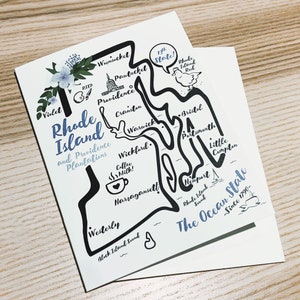 Woonsocket
Pawtucket
Providence
13th
State!
Rhode
Island
Red
Violet
Rhode
Island
and Providence
Plantations
Cranston
Warwick
Bristol
Portsmouth
Wickford
Coffee
Milk!
Little
Compton
Newport
Narragansett
Rhode Island
Sound
The Ocean State
Since 1790
Westerly
Block Island Sound